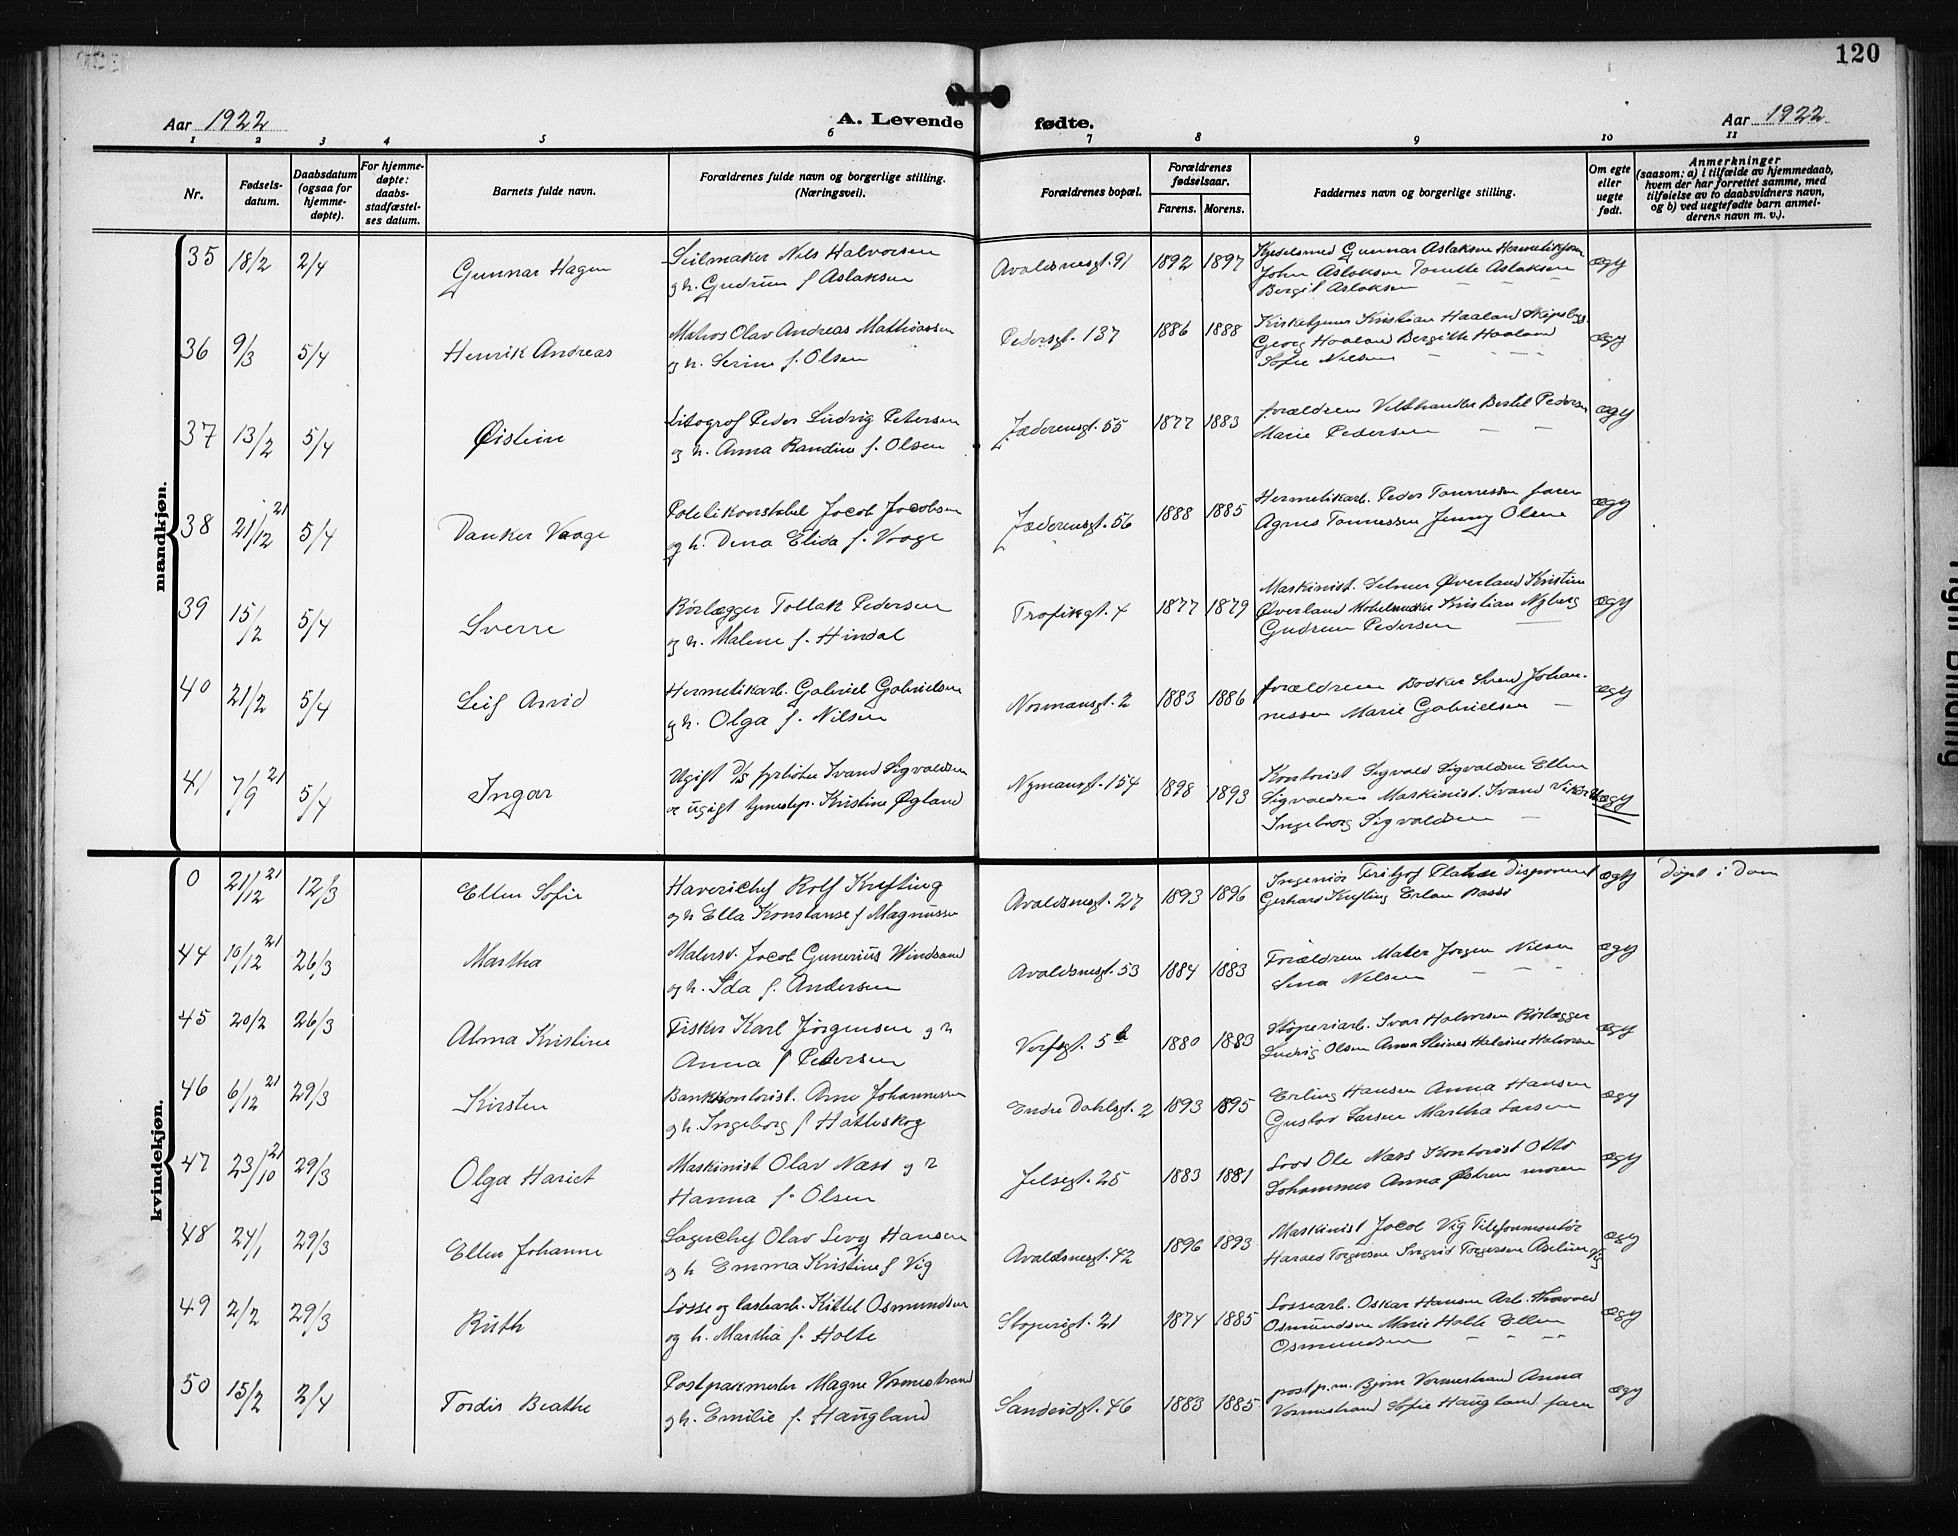 120
Aar 1922
A. Levende fødte.
Aar 1922
1 2 3 4 5 6 7 8 9 10 11
Nr.
Fødsels-
datum.
Daabsdatum
(ogsaa for
hjemme-
døpte).
For hjemme-
døpte:
daabs-
stadfæstel-
ses datum.
Barnets fulde navn.
Forældrenes fulde navn og borgerlige stilling.
(Næringsvei).
Forældrenes bopæl.
Forældrenes
fødselsaar.
Farens. Morens.
Faddernes navn og borgerlige stilling.
Om egte
eller
uegte
født.
Anmerkninger
(saasom: a) i tilfælde av hjemmedaab,
hvem der har forrettet samme, med
tilføielse av to daabsvidners navn,
og b) ved uegtefødte barn anmel-
derens navn m. v.).
mandkjøn.
35 18/2 2/4 Gunnar Hagen
Seilmaker Nils Halvorsen
og h. Gudrun f Aslaksen
Avaldsnesgt. 91 1892 1897
Kjedelsmed Gunnar Aslaksen
John Aslaksen Tomette Aslaksen
Bergit Aslaksen
ægt
36 9/3 5/4 Henrik Andreas
Matros Olav Andreas Mathiassen
og h. Serine f. Olsen
Pedersgt. 137 1886 1888
Kirketjener Kristian Haaland
Georg Haaland Bergitte Haaland
Sofie Nilsen
ægt
37 13/2 5/4 Øistein
Litograf Peder Ludvig Petersen
og h. Anna Randine f. Olsen
Jæderensgt. 55 1877 1883
forældrene Bertel Pedersen
Marie Pedersen
ægt
38 21/12 21 5/4 Danker Vaage
Politikonstabel Jacob Jacobsen
og h. Dina Elisa f. Vaage
Jæderensgt. 56 1888 1885
Hermetikarb. Peder Tønnessen faren
Agnes Tønnessen Jenny Olsen
ægt
39 15/2 5/4 Sverre
Rørlægger Tollak Pedersen
og h. Malene f. Hindal
Trafikgt. 4 1877 1879
Maskinist. Selmer Øverland Kristine
Øverland Møbelsnedker Kristian Nyberg
Gudrun Pedersen
ægt
40 21/2 5/4 Leif Arvid
Hermetikarb. Gabriel Gabrielsen
og h. Olga f. Nilsen
Normansgt. 2 1883 1886
forældrene Bødker Johan-
nessen Marie Gabrielsen
ægt
41 7/9 21 5/4 Ingar
Ugift D/S fyrbøter Ivand Sigvaldsen
og ugift tjenestep. Kristine Øgland
Nymansgt. 154 1898 1893
Kontorist Sigvald Sigvaldsen Ellen
Sigvaldsen Maskinist. Ivand
Ingeborg Sigvaldsen
uægt
kvindekjøn.
0 21/12 21 12/3 Ellen Sofie
Haverichef Rolf Kiefting
og h Ella Konstanse f Magnussen
Avaldsnesgt. 27 1893 1896
Ingeniør Fritjof Disponent
Gerhard Kiefting
ægt døpt i Dom
44 10/12 21 26/3 Martha
Malersv. Jacob Gunerius Windsand
og h. Ida f. Andersen
Avaldsnesgt. 53 1884 1883
Forældrene Maler Jørgen Nilsen
Sina Nilsen
ægt
45 20/2 26/3 Alma Kristine
Fisker Karl Jørgensen og h
Anna f Petersen
Verfsgt. 5 b 1880 1883
Støperiarb. Ivar Halvorsen Rørlægger
Ludvig Olsen Anna Steines Halvorsen
ægt
46 6/12 21 29/3 Kirsten
Bankkontorist. Arne Johannessen
og h. Ingeborg f Hatteskog
Endre Dahlsgt. 2 1893 1895
Erling Hansen Anna Hansen
Gustav Larsen Martha Larsen
ægt
47 23/10 21 29/3 Olga Hariet
Maskinist Olav Næss og h
Hanna f. Olsen
Jelsegt. 25 1883 1881
Lods Ole Næss Kontorist Otto
Johannes Anna Østrem moren
ægt
48 24/1 29/3 Ellen Johanne
Lagerchef Olav Levy Hansen
og h Emma Kristine f Vig
Avaldsnesgt. 42 1896 1893
Maskinist Jacob Vig Telefonmontør
Harald Torgersen Ingrid Torgersen Aseline Vig
ægt
49 2/2 29/3 Ruth
Losse og lastearb. Kittel Osmundsen
og h. Martha f. Holte
Støperigt. 21 1874 1885
Lossearb. Oskar Hansen Arb. Thorvald
Osmundsen Marie Holte Ellen
Osmundsen
ægt
50 15/2 2/4 Tordis Beathe
Postpakmester Magne Vormestrand
og h. Emilie f. Haugland
Sandeidgt. 46 1883 1885
postp.m. Bjørn Vormestrand Anna
Vormestrand Sofie Haugland faren
ægt